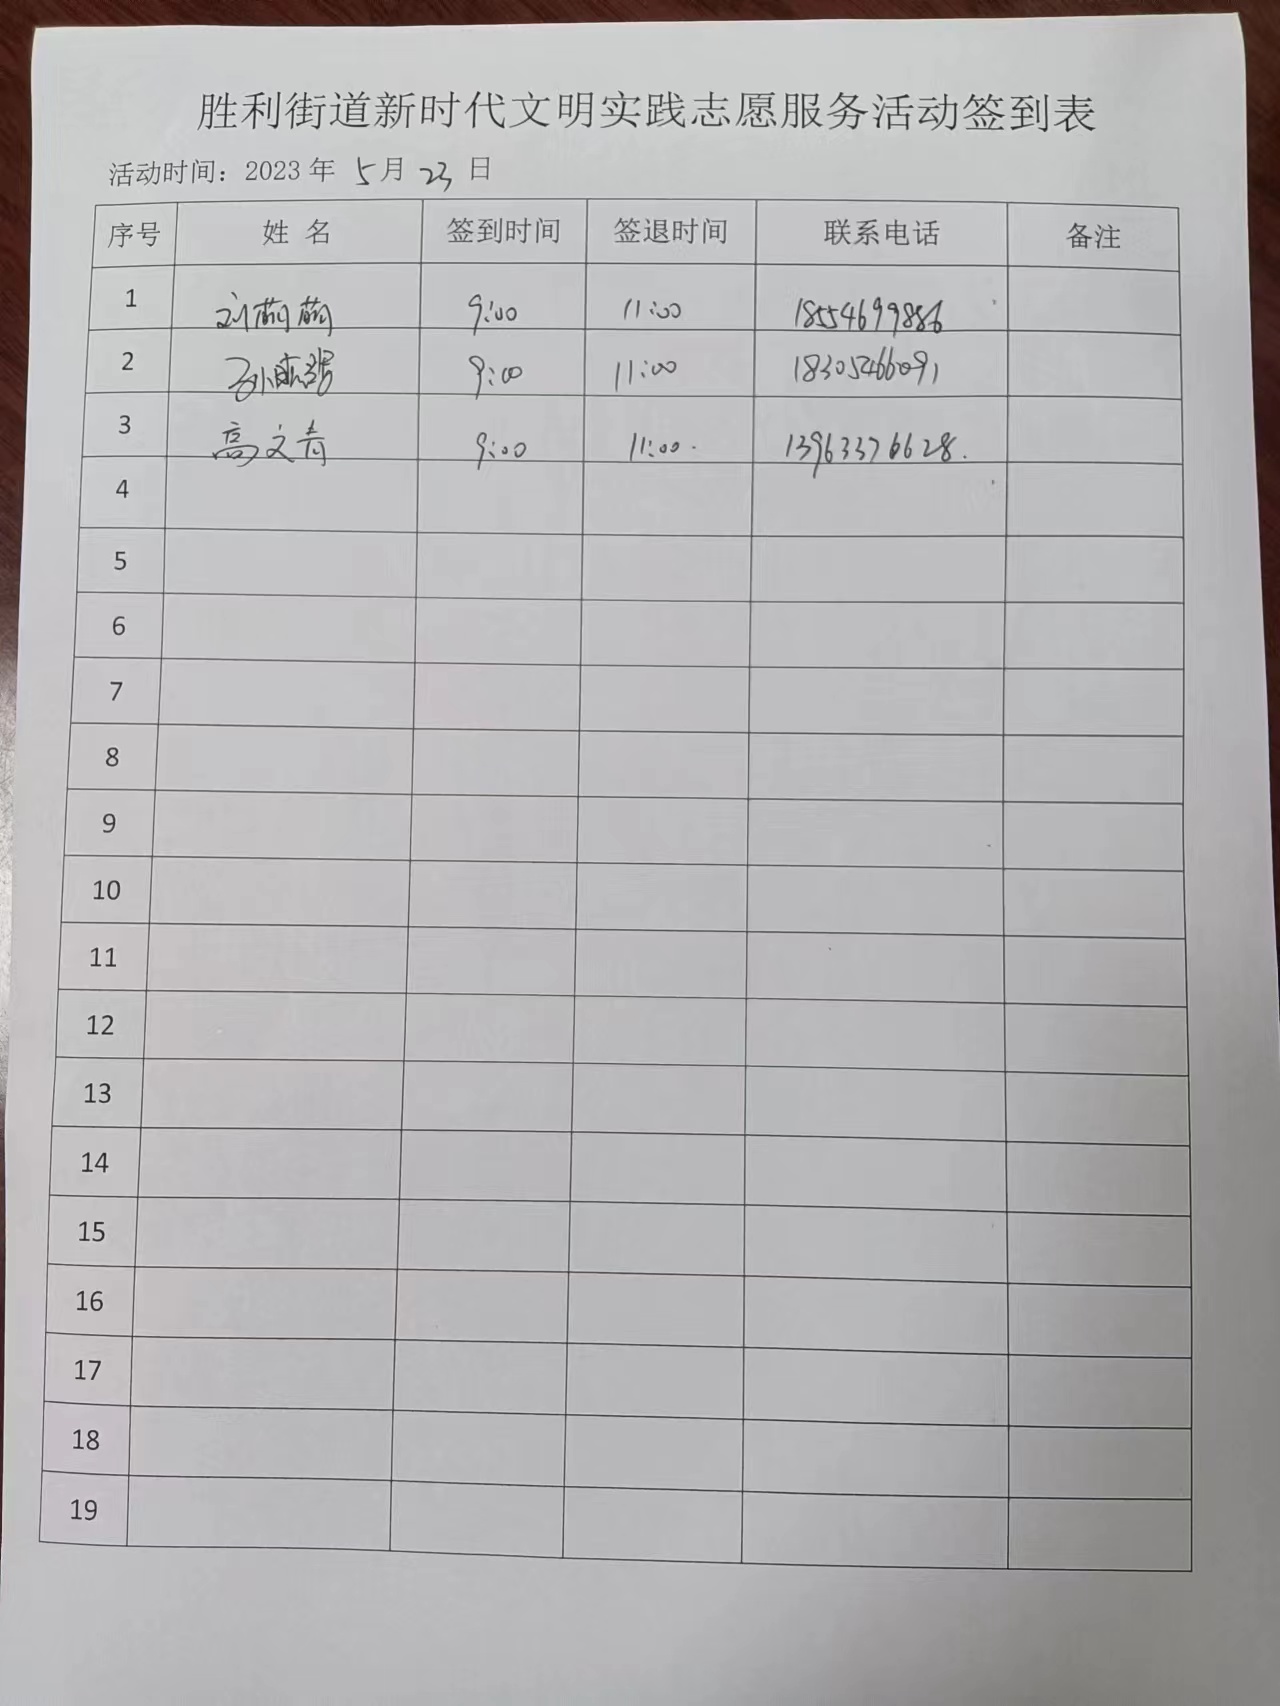 胜利街道新时代文明实践志愿服务活动签到表
活动时间：2023 年 5 月 23 日
序号 姓 名 签到时间 签退时间 联系电话 备注
1 刘 9:00 11:00 18554699886
2 孙 9:00 11:00 18305466091
3 高文青 9:00 11:00. 13963376628.
4
5
6
7
8
9
10
11
12
13
14
15
16
17
18
19